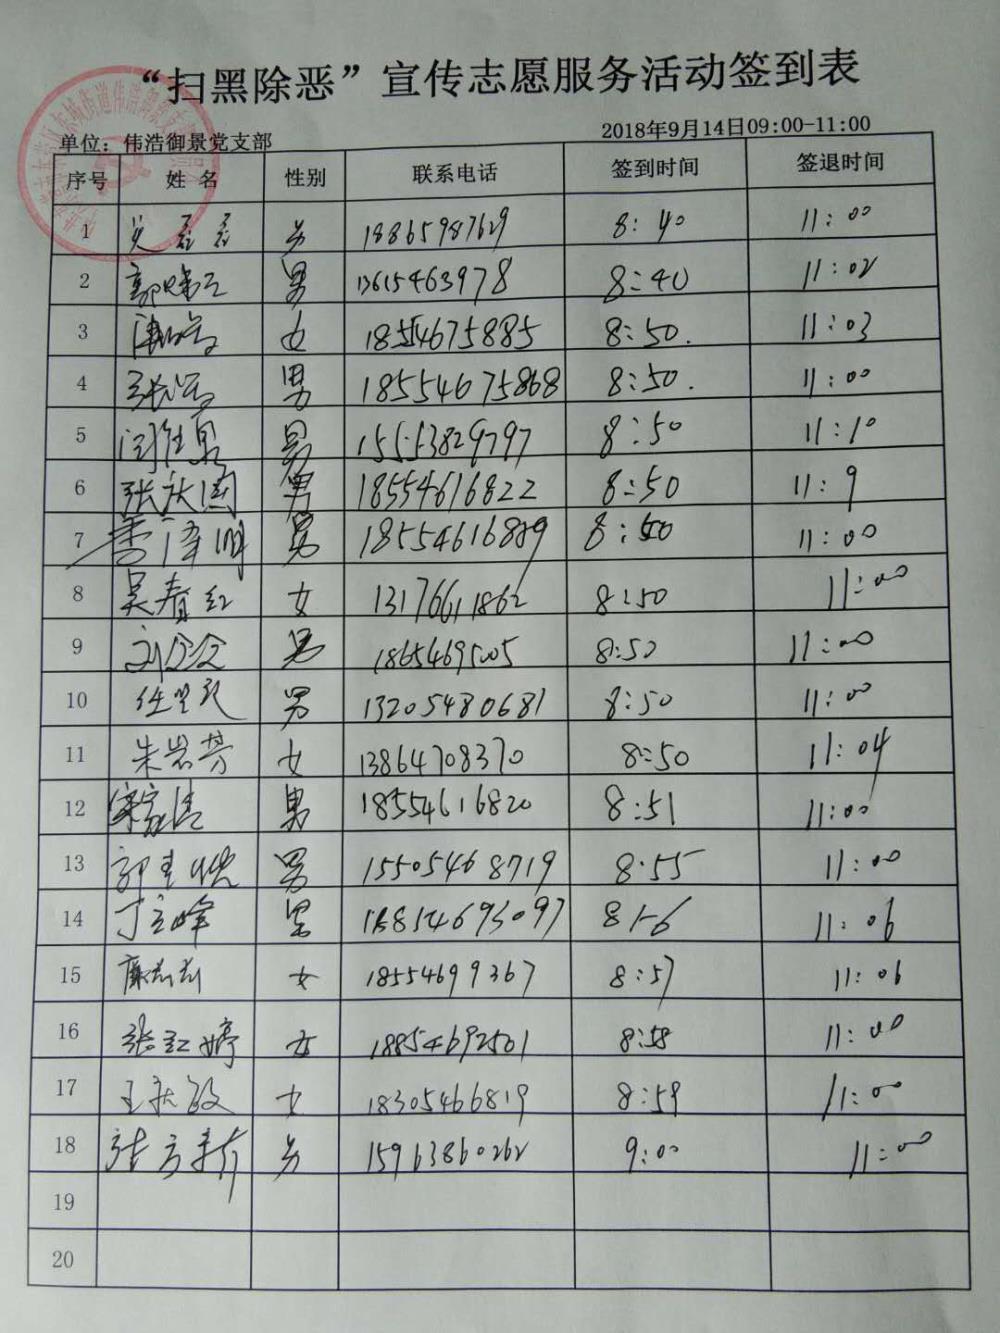 “扫黑除恶”宣传志愿服务活动签到表
单位：伟浩御景党支部 2018年9月14日09:00-11:00
序号 姓名 性别 联系电话 签到时间 签退时间
1 磊磊 男 18865987629 8:40 11:00
2 男 13615463978 8:40 11:02
3 女 18554675885 8:50. 11:03
4 男 18554675868 8:50. 11:00
5 男 8:50 11:10
6 张庆国 男 18554616822 8:50 11:9
7 李泽明 男 8:50 11:00
8 吴春红 女 8:50 11:00
9 男 18654695005 8:50 11:00
10 男 13205480681 8:50 11:00
11 朱岩芳 女 13864708370 8:50 11:04
12 男 18554616820 8:51 11:00
13 男 15505468719 8:55 11:00
14 丁立峰 男 11:06
15 女 18554699367 8:57 11:06
16 张红婷 女 18854692501 8:58 11:00
17 女 18305466819 8:59 11:00
18 男 15963860262 9:00 11:00
19
20